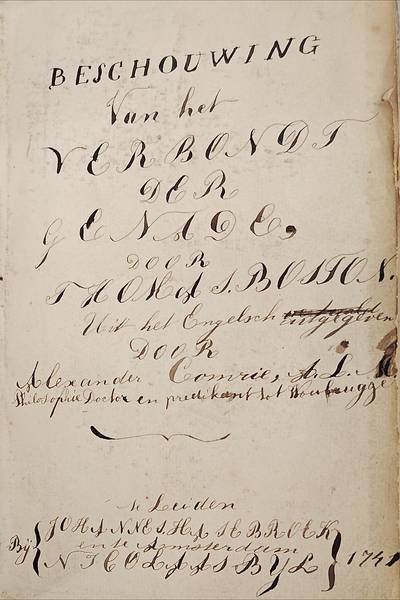 BESCHOUWING
Van het
VERBONDT
DER
GENADE,
DOOR
THOMAS BOSTON.
Uit het Engelsch uitgegeven
DOOR
Alexander Comrie, A. L. M.
Philosophie Doctor en predikant tot Woubrugge
te Leiden
Bij JOHANNES HASEBROEK
en te Amsterdam 1741
NICOLAAS BYL